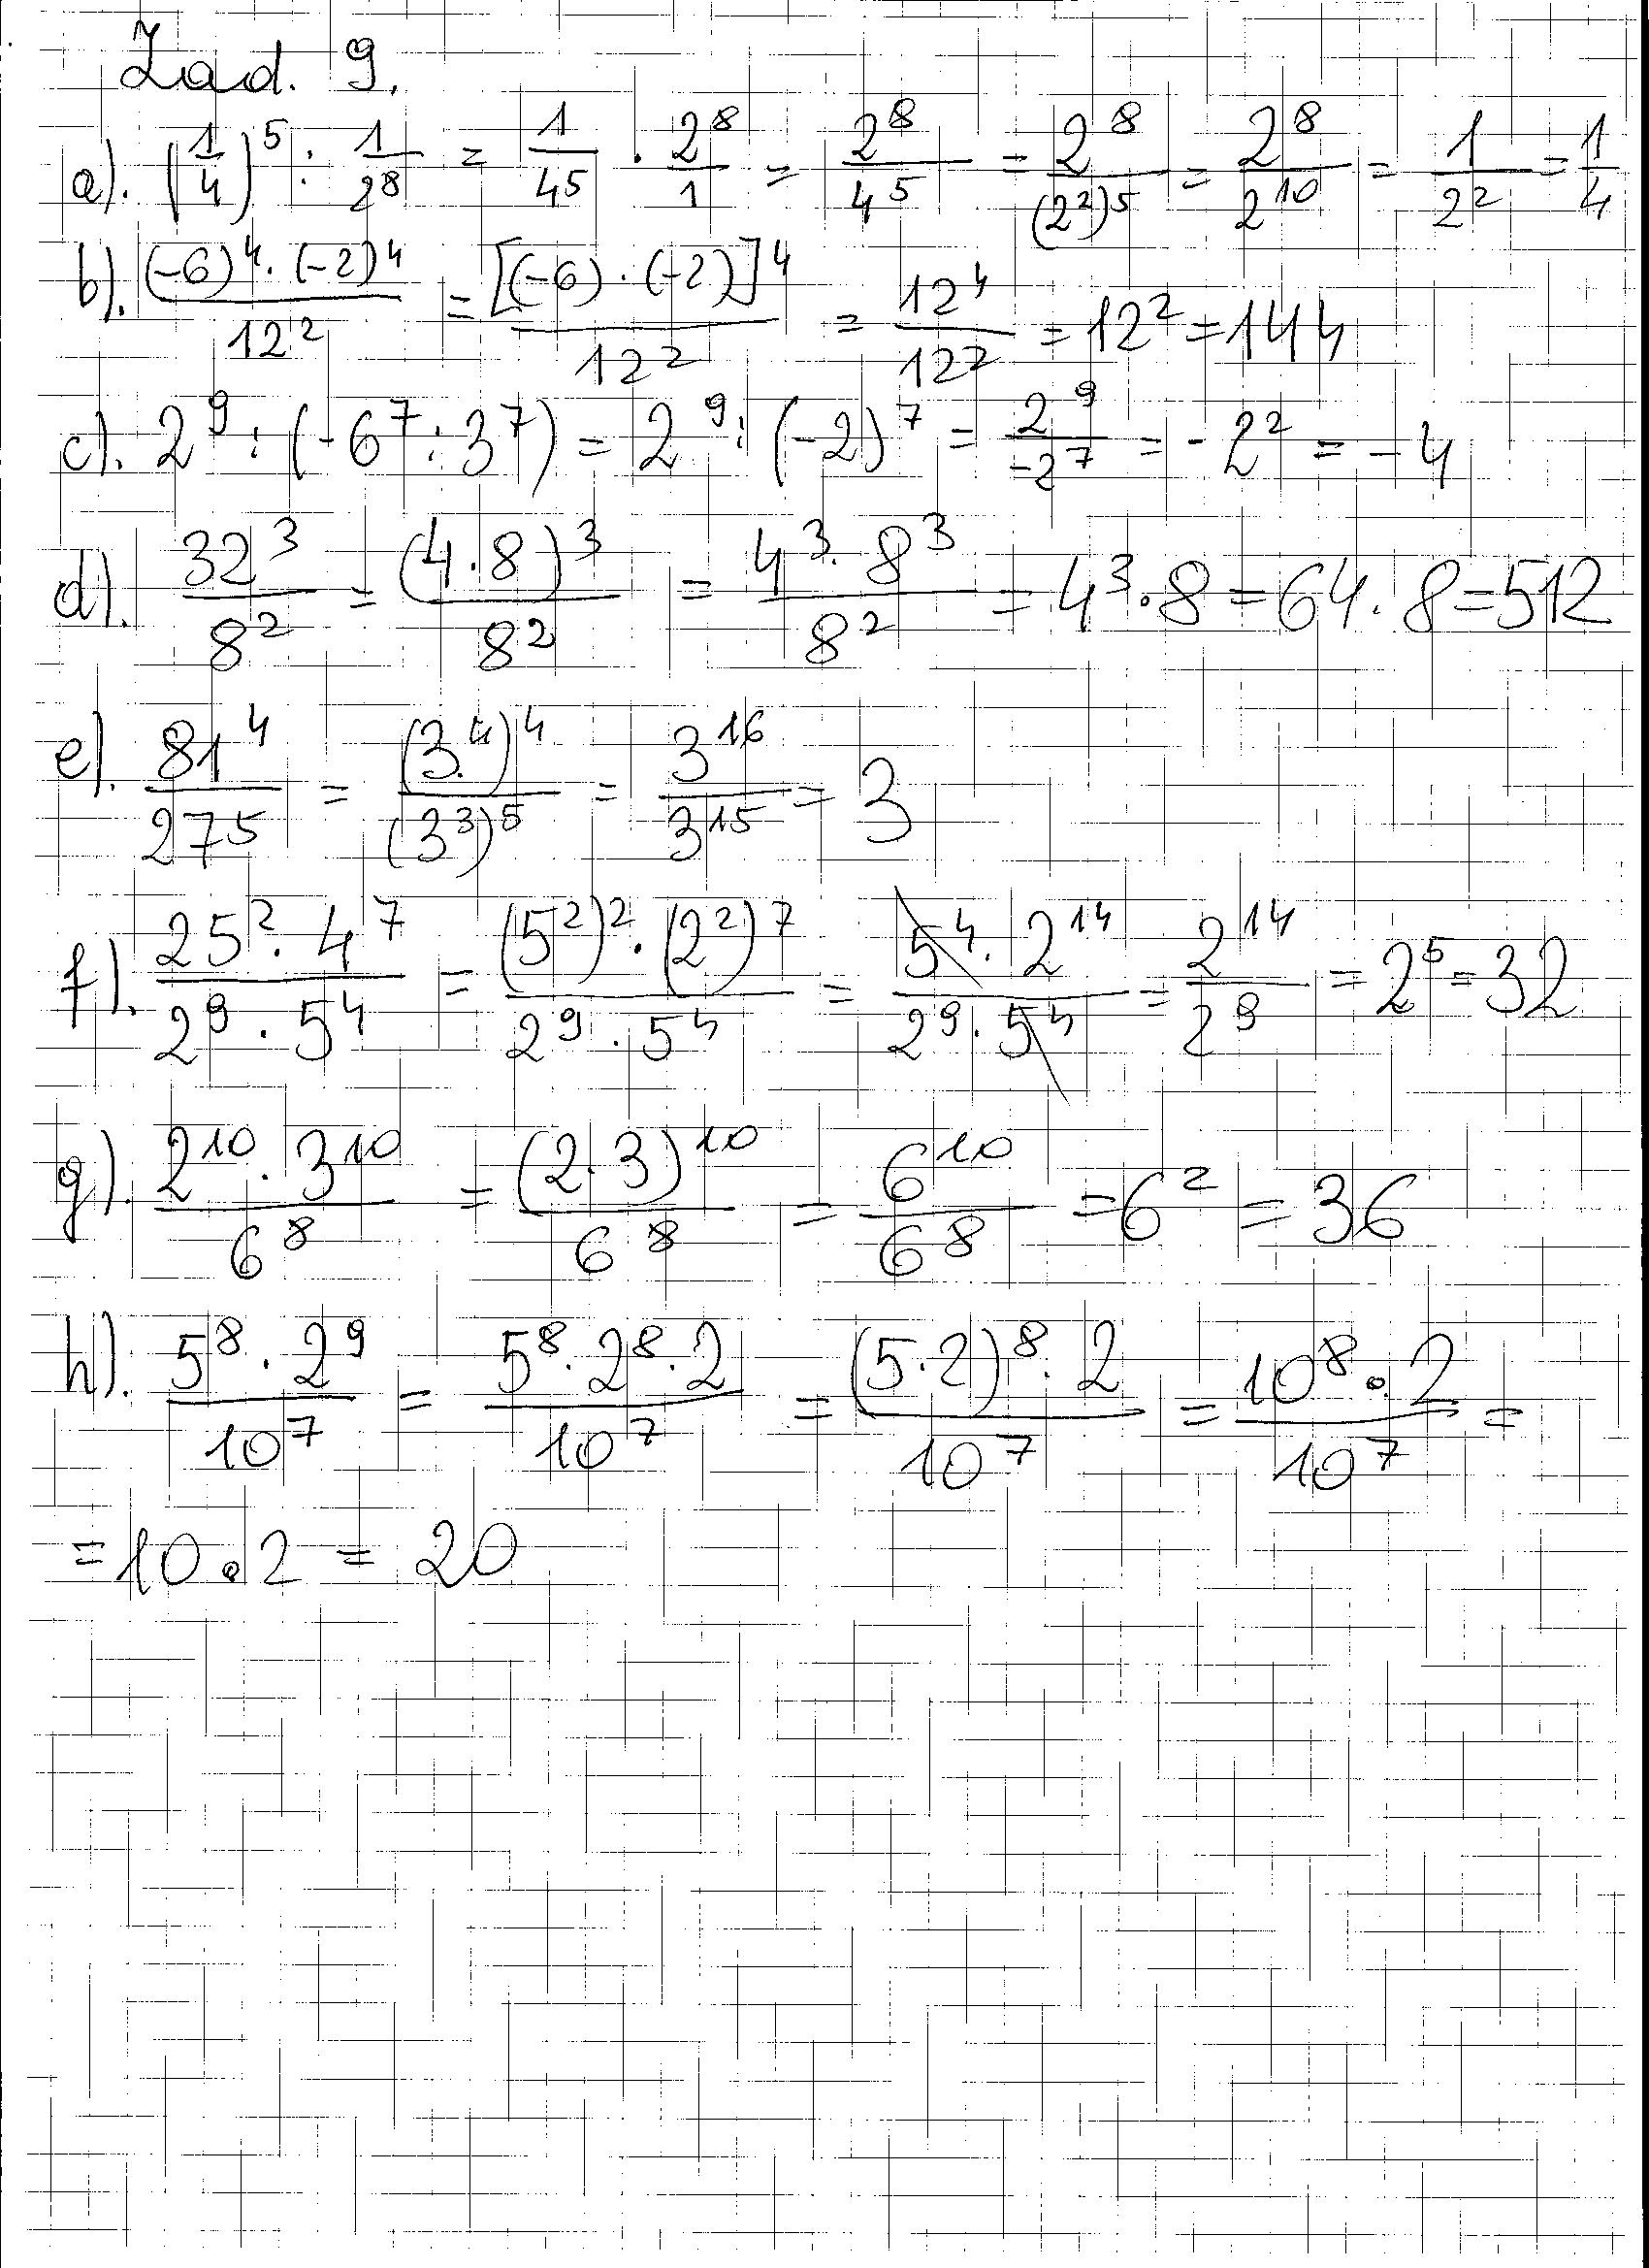 Zad. 9.
a). (1/4)^5 : 1/2^8 = 1/4^5 · 2^8/1 = 2^8/4^5 = 2^8/(2^2)^5 = 2^8/2^10 = 1/2^2 = 1/4
b). (-6)^4 · (-2)^4/12^2 = [(-6) · (-2)]^4/12^2 = 12^4/12^2 = 12^2 = 144
c). 2^9 : (-6^7 : 3^7) = 2^9 : (-2)^7 = 2^9/-2^7 = -2^2 = -4
d). 32^3/8^2 = (4·8)^3/8^2 = 4^3 · 8^3/8^2 = 4^3 · 8 = 64 · 8 = 512
e). 81^4/27^5 = (3^4)^4/(3^3)^5 = 3^16/3^15 = 3
f). 25^2 · 4^7/2^9 · 5^4 = (5^2)^2 · (2^2)^7/2^9 · 5^4 = 5^4 · 2^14/2^9 · 5^4 = 2^14/2^9 = 2^5 = 32
g). 2^10 · 3^10/6^8 = (2·3)^10/6^8 = 6^10/6^8 = 6^2 = 36
h). 5^8 · 2^9/10^7 = 5^8 · 2^8 · 2/10^7 = (5·2)^8 · 2/10^7 = 10^8 · 2/10^7 =
= 10 · 2 = 20